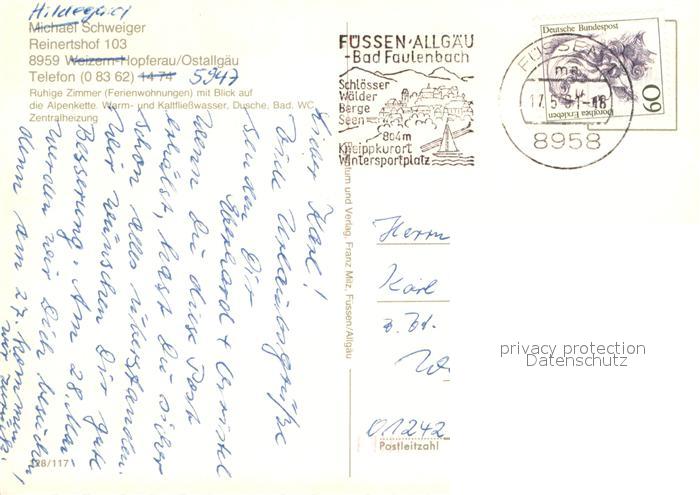 Hildegard
Michael Schweiger
Reinertshof 103
8959 Weizern-Hopferau/Ostallgäu
Telefon (0 83 62) 1474 5947
Ruhige Zimmer (Ferienwohnungen) mit Blick auf
die Alpenkette. Warm- und Kaltfließwasser, Dusche, Bad, WC,
Zentralheizung
Lieber Karl!
Viele Urlaubsgrüße
senden Dir
Eberhard + Christel
Wenn Du diese Post
erhältst, hast Du sicher
schon alles überstanden.
Wir wünschen Dir gute
Besserung. Am 28. Mai
werden wir Dich besuchen,
denn am 27. kommen
wir zurück.
28/117
FÜSSEN·ALLGÄU
-Bad Faulenbach
Schlösser
Wälder
Berge
Seen
804m
Kneippkurort
Wintersportplatz
FÜSSEN
ma
17.5.91-18
8958
Deutsche Bundespost
Dorothea Erxleben
60
und Verlag, Franz Milz, Füssen/Allgäu
Herrn
Karl
z. Zt.
01242
Postleitzahl
privacy protection
Datenschutz